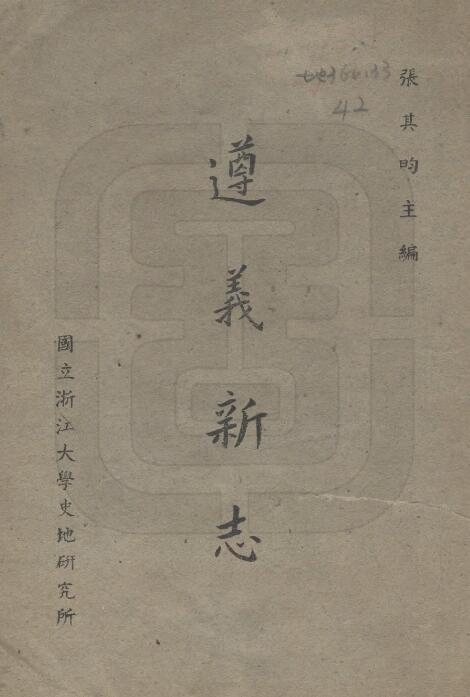 張其昀主編
遵義新志
國立浙江大學史地研究所
42